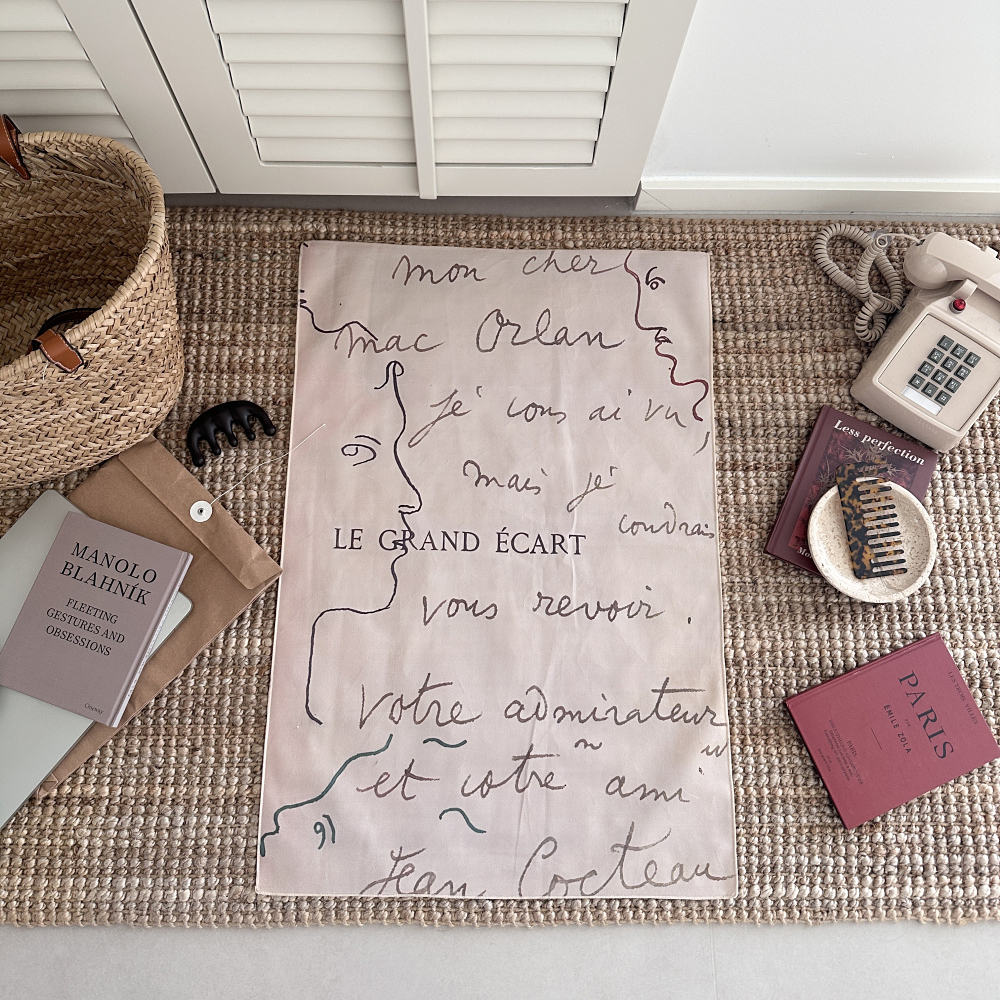 mon cher
mac Orlan
je vous ai vu,
mais je
voudrais
LE GRAND ÉCART
vous revoir.
votre admirateur
et votre ami
Jean Cocteau
MANOLO
BLAHNÍK
FLEETING
GESTURES AND
OBSESSIONS
Less perfection
PARIS
ÉMILE ZOLA
PARIS